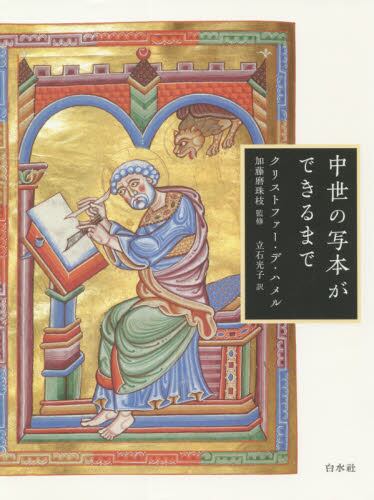 中世の写本が
できるまで
クリストファー・デ・ハメル
加藤磨珠枝 監修
立石光子 訳
白水社